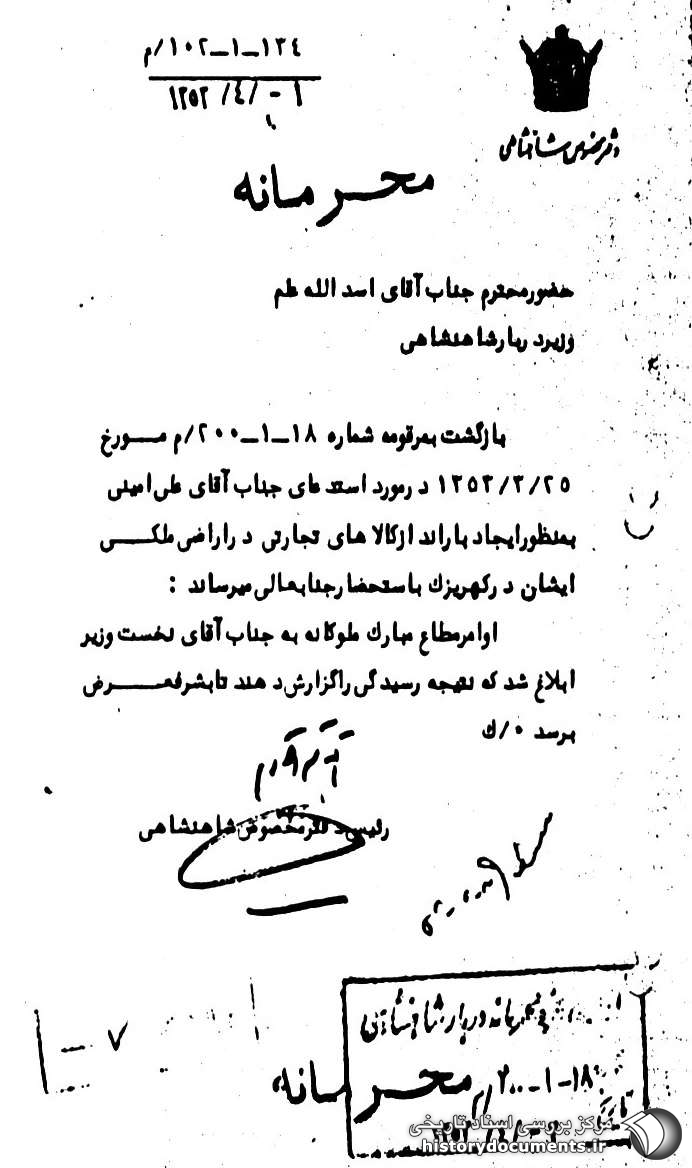 ۱۳٤-۱-۱۰۲/م
۱۳۵۲/٤/-۱
دفتر مخصوص شاهنشاهی
محرمانه
حضور محترم جناب آقای اسد الله علم
وزیر دربار شاهنشاهی
بازگشت بمرقومه شماره ۱۸-۱-۲۰۰/م مـــورخ
۱۳۵۲/۳/۲۵ در مورد استدعای جناب آقای علی امینی
بمنظور ایجاد بارانداز کالاهای تجارتی در اراضی ملکـــی
ایشان در کهریزک باستحضار جنابعالی میرساند :
اوامر مطاع مبارک ملوکانه به جناب آقای نخست وزیر
ابلاغ شد که نتیجه رسیدگی را گزارش دهند تا بشرفعـــرض
برسد ۰/ك
رئیس دفتر مخصوص شاهنشاهی
محرمانه دربار شاهنشاهی
۱۸-۱-۲۰۰/م
محرمانه
مرکز بررسی اسناد تاریخی
historydocuments.ir